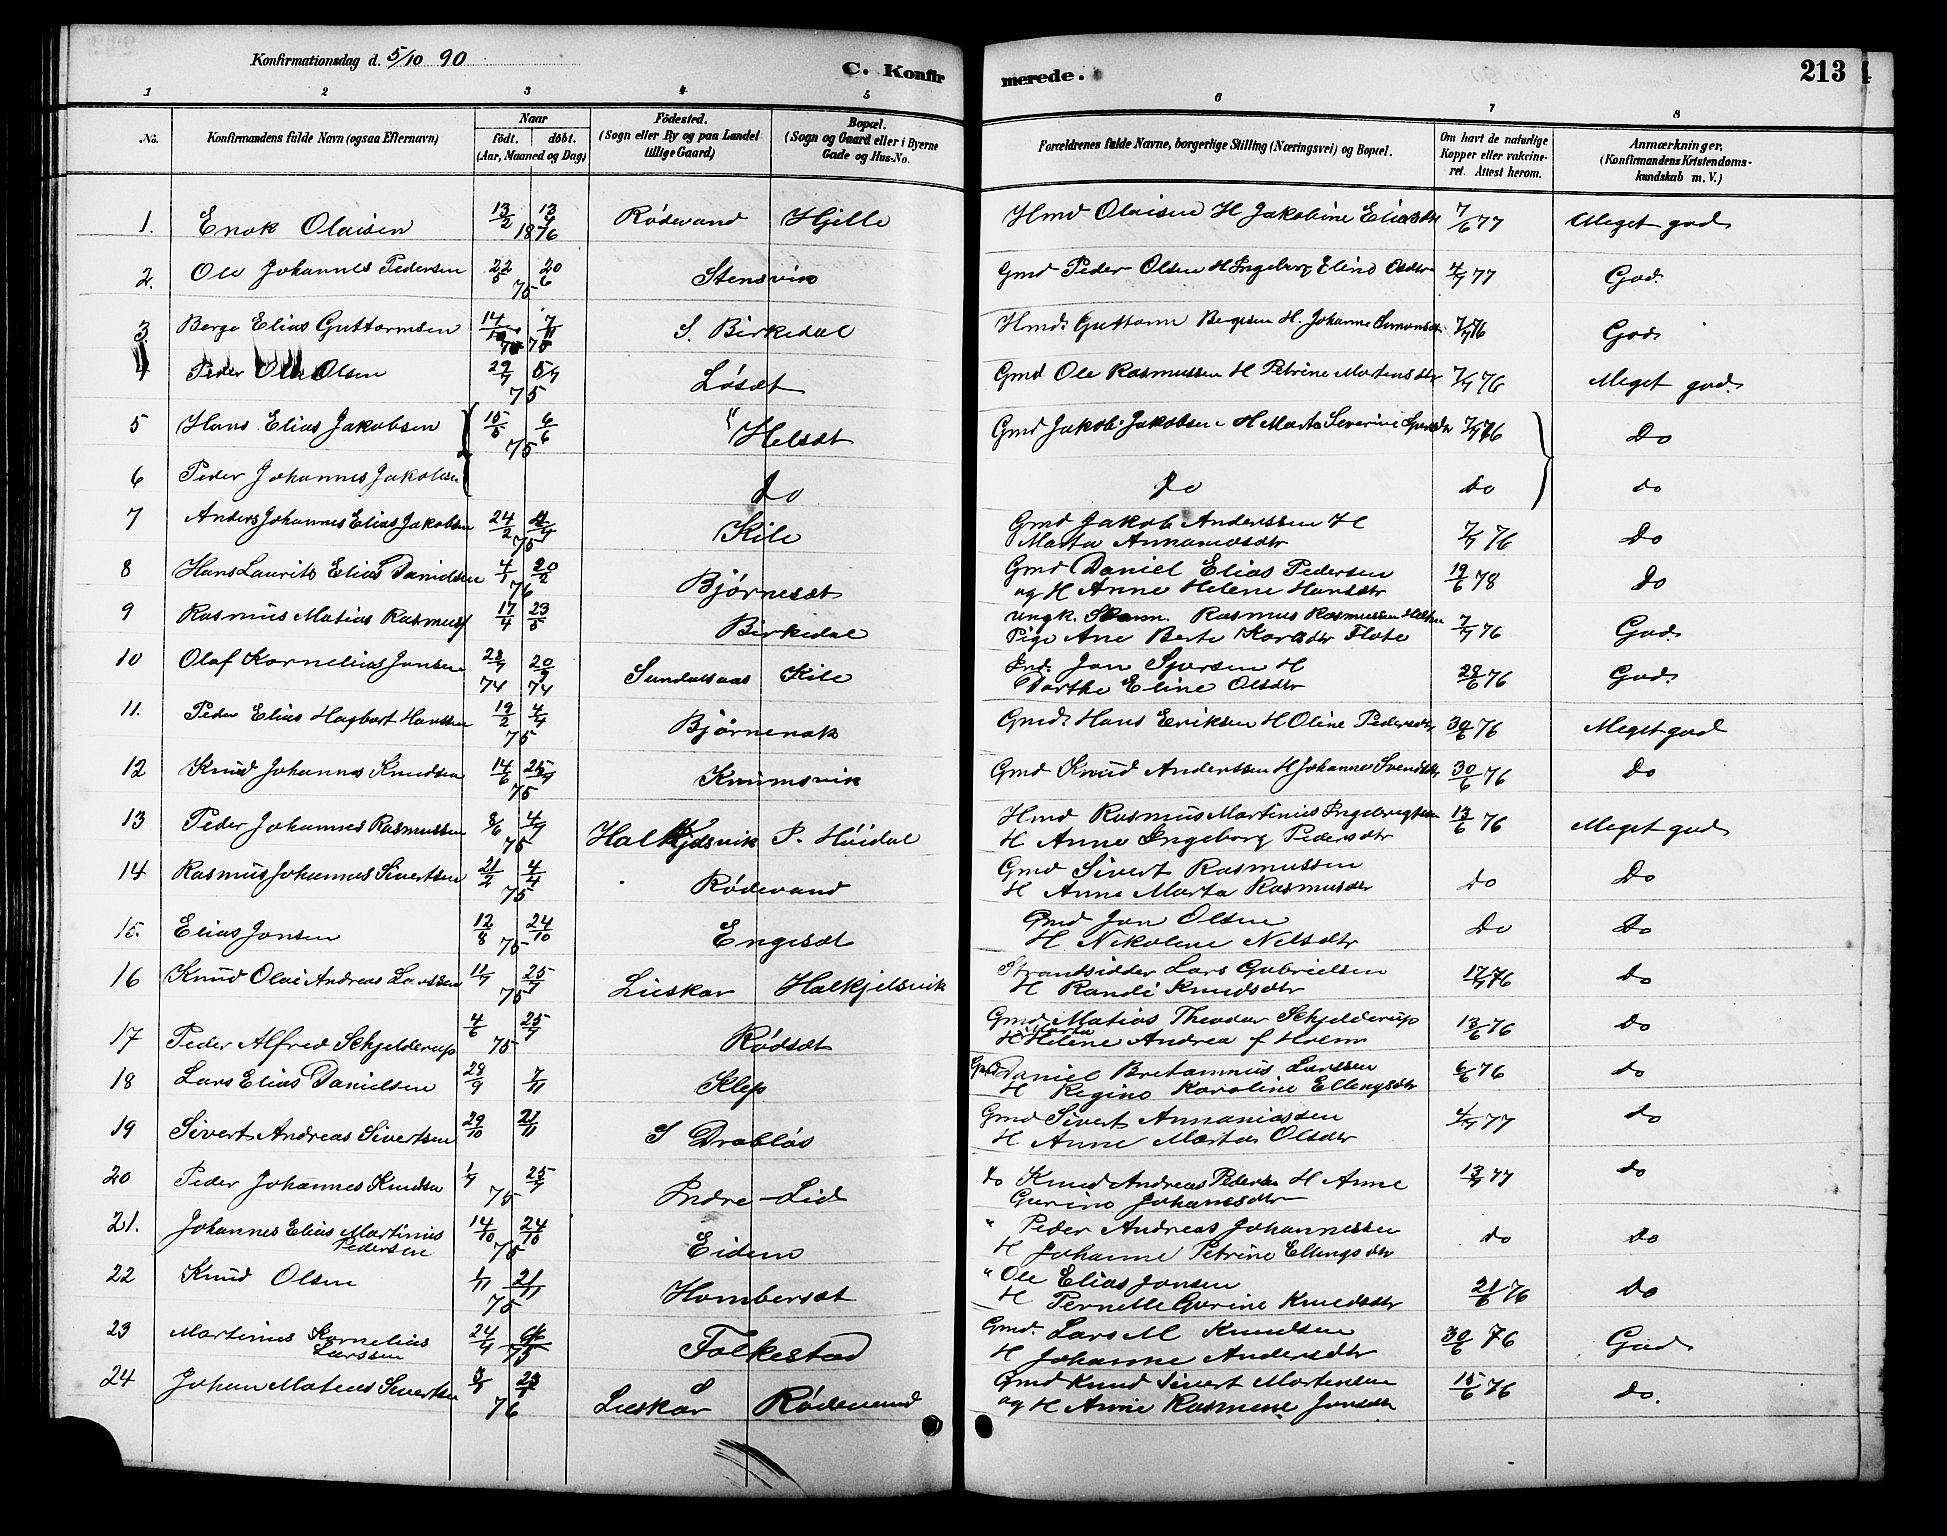 Konfirmationsdag d. 5/10 90
C. Konfirmerede.
213
1 2 3 4 5 6 7 8
No.
Konfirmandens fulde Navn (ogsaa Efternavn)
Naar født. døbt. (Aar, Maaned og Dag)
Fødested. (Sogn eller By og paa Landet tillige Gaard)
Bopæl. (Sogn og Gaard eller i Byerne Gade og Hus-No.
Forældrenes fulde Navne, borgerlige Stilling (Næringsvei) og Bopæl.
Om havt de naturlige Kopper eller vakcineret. Attest herom.
Anmærkninger. (Konfirmandens Kristendomskundskab m. V.)
1. Enok Olaisen 13/2 13/4 1876 Rødevand Hjelle Hmd Olaisen H Jakobine Eliasdtr 7/6 77 Meget god
2. Ole Johannes Pedersen 22/5 20/6 75 Stensvik Gmd Peder Olsen H Ingeborg Oldtr 4/7 77 God.
3 Berge Elias Guttormsen 14/10 7/11 75 S. Birkedal Hmd. Guttorm Bergesen H. Johanne Simonsdtr 7/7 76 God
4 Peder Olsen 29/7 75 Løsæt Gmd Ole Rasmussen H Petrine Martensdtr 7/7 76 Meget god.
5 Hans Elias Jakobsen 15/5 6/6 75 " Helsæt Gmd Jakob Jakobsen H Marta Severine 7/7 76 Do
6 Peder Johannes Jakobsen do do do do
7 Anders Johannes Elias Jakobsen 24/2 4/4 75 Kile Gmd Jakob Anderssen H Marta Annaniasdtr 7/7 76 Do
8 Hans Laurits Elias Danielsen 4/1 20/2 76 Bjørnesæt Gmd Daniel Elias Pedersen og H Anne Helene Hansdtr 19/6 78 Do
9 Rasmus Matias Rasmus 17/4 23/5 Birkedal ungk. Rasmus Rasmussen Pige Ane Berte Flote 7/7 76 God.
10 Olaf Kornelius Jonsen 28/7 20/9 74 74 Sundalsaas Kile Ind. Jon Sjursen H Dorthe Eline Olsdtr 28/6 76 God.
11. Peder Elias Hagbart Hanssen 19/2 4/4 75 Bjørnenak Gmd. Hans Eriksen H Oline Pedersdtr 30/6 76 Meget god
12 Knud Johannes Knudsen 14/6 25/7 75 Knumsvik Gmd Knud Anderssen H Johanne Svendsdtr 30/6 76 Do
13 Peder Johannes Rasmussen 8/6 4/7 75 Halkjelsvik P. Høidal Hmd Rasmus Martinius Ingebrigtsen H Anne Ingeborg Pedersdtr 13/6 76 Meget god
14 Rasmus Johannes Sivertsen 21/2 4/4 75 Rødevand Gmd Sivert Rasmussen H Anne Marta Rasmusdtr do Do
15. Elias Jonsen 12/8 24/10 75 Engesæt Gmd Jon Olsen H. Nikoline Nelsdtr Do Do
16 Knud Olai Andreas Larssen 11/7 25/7 75 Lieskar Halkjelsvik Strandsidder Lars Gabrielsen H Randi Knudsdtr 17/7 76 Do
17 Peder Alfred Schjelderup 4/6 25/7 75 Rødsæt Gmd Matias Theodor Schjelderup H Marta Helene Andrea f Holm 13/6 76 Do
18 Lars Elias Danielsen 28/9 7/11 Klep Gmd Daniel Bretamnus Larssen H Regine Karoline Ellingsdtr 6/6 76 do
19 Sivert Andreas Sivertsen 29/10 21/11 S Drabløs Gmd Sivert Annaniassen H Anne Marta Olsdtr 4/7 77 do
20 Peder Johannes Knudsen 1/7 25/7 75 Indre-Lid do Knud Andreas Pedersen H Anne Gurine Johansdtr 13/7 77 do
21. Johannes Elias Martinius Pedersen 14/10 24/10 75 Eidem " Peder Andreas Johannessen H Johanne Petrine Ellingsdtr do Do
22 Knud Olsen 1/11 21/11 75 Hombersæt " Ole Elias Jonsen H Pernelle Gurine Knudsdtr 21/6 76 Do
23 Martinus Kornelius Larssen 24/4 75 Folkestad Gmd. Lars M Knudsen H Johanne Andersdtr 30/6 76 God
24 Johan Mateus Sivertsen 3/1 76 Lieskar Rødevand Gmd Knud Sivert Martensen og H Anne Rasmine Jonsdtr 15/6 76 do.